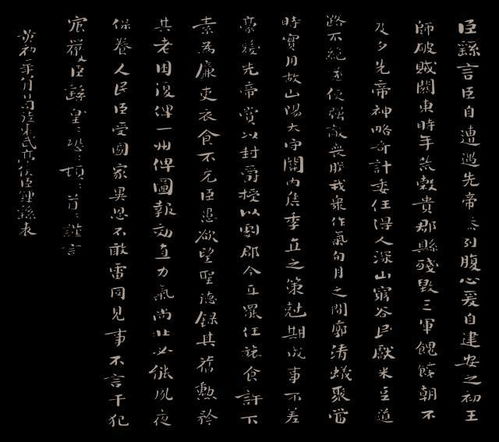 臣繇言臣自遭遇先帝忝列腹心爰自建安之初王
師破賊關東時年荒穀貴郡縣殘毀三軍餽饟朝不
及夕先帝神略奇計委任得人深山窮谷民獻米豆道
路不絕遂使強敵喪膽我眾作氣旬月之間廓清蟻聚當
時實用故山陽太守關內侯季直之策剋期成事不差
豪髮先帝賞以封爵授以劇郡今直罷任旅食許下
素為廉吏衣食不充臣愚欲望聖德錄其舊勳矜
其老困復俾一州俾圖報效直力氣尚壯必能夙夜
保養人民臣受國家異恩不敢雷同見事不言干犯
宸嚴臣繇皇:恐:頓:首:謹言
黃初二年八月日司徒東武亭侯臣鍾繇表